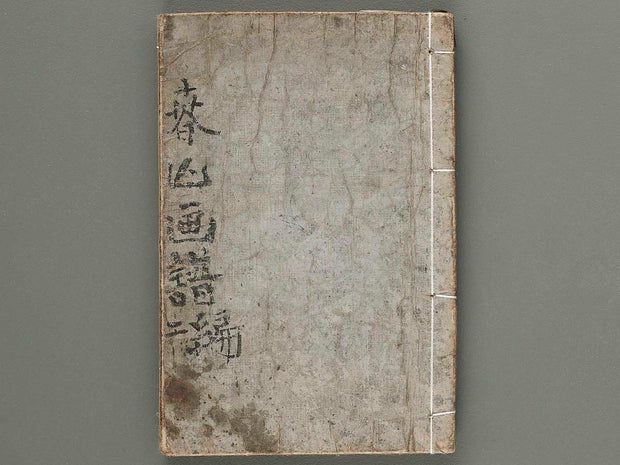 春山画譜
二編